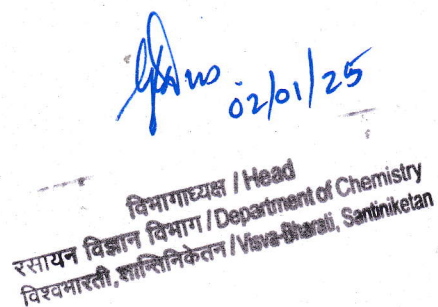 02/01/25
विभागाध्यक्ष / Head
रसायन विज्ञान विभाग / Department of Chemistry
विश्वभारती, शान्तिनिकेतन / Visva-Bharati, Santiniketan